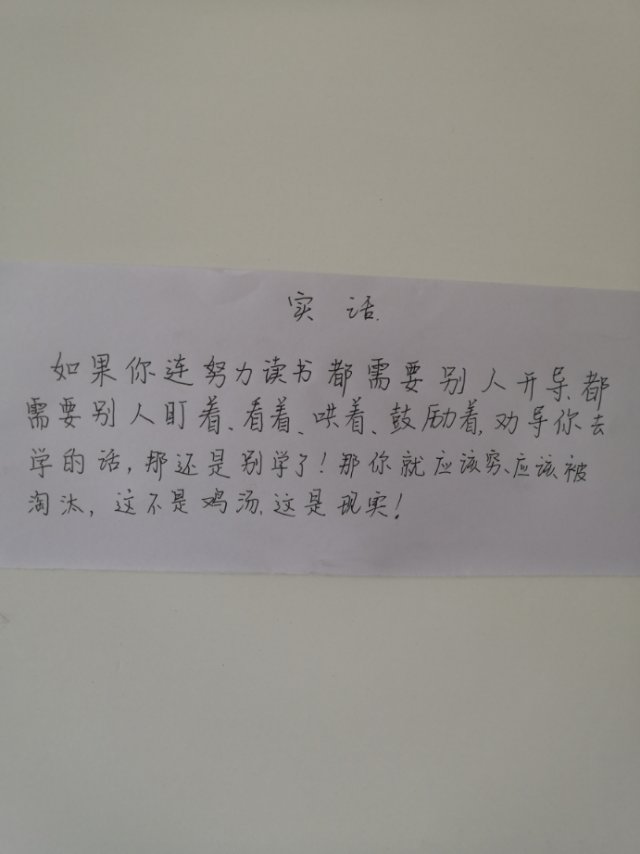 实话.
如果你连努力读书都需要别人开导、都
需要别人盯着、看着、哄着、鼓励着,劝导你去
学的话,那还是别学了!那你就应该穷、应该被
淘汰,这不是鸡汤,这是现实!